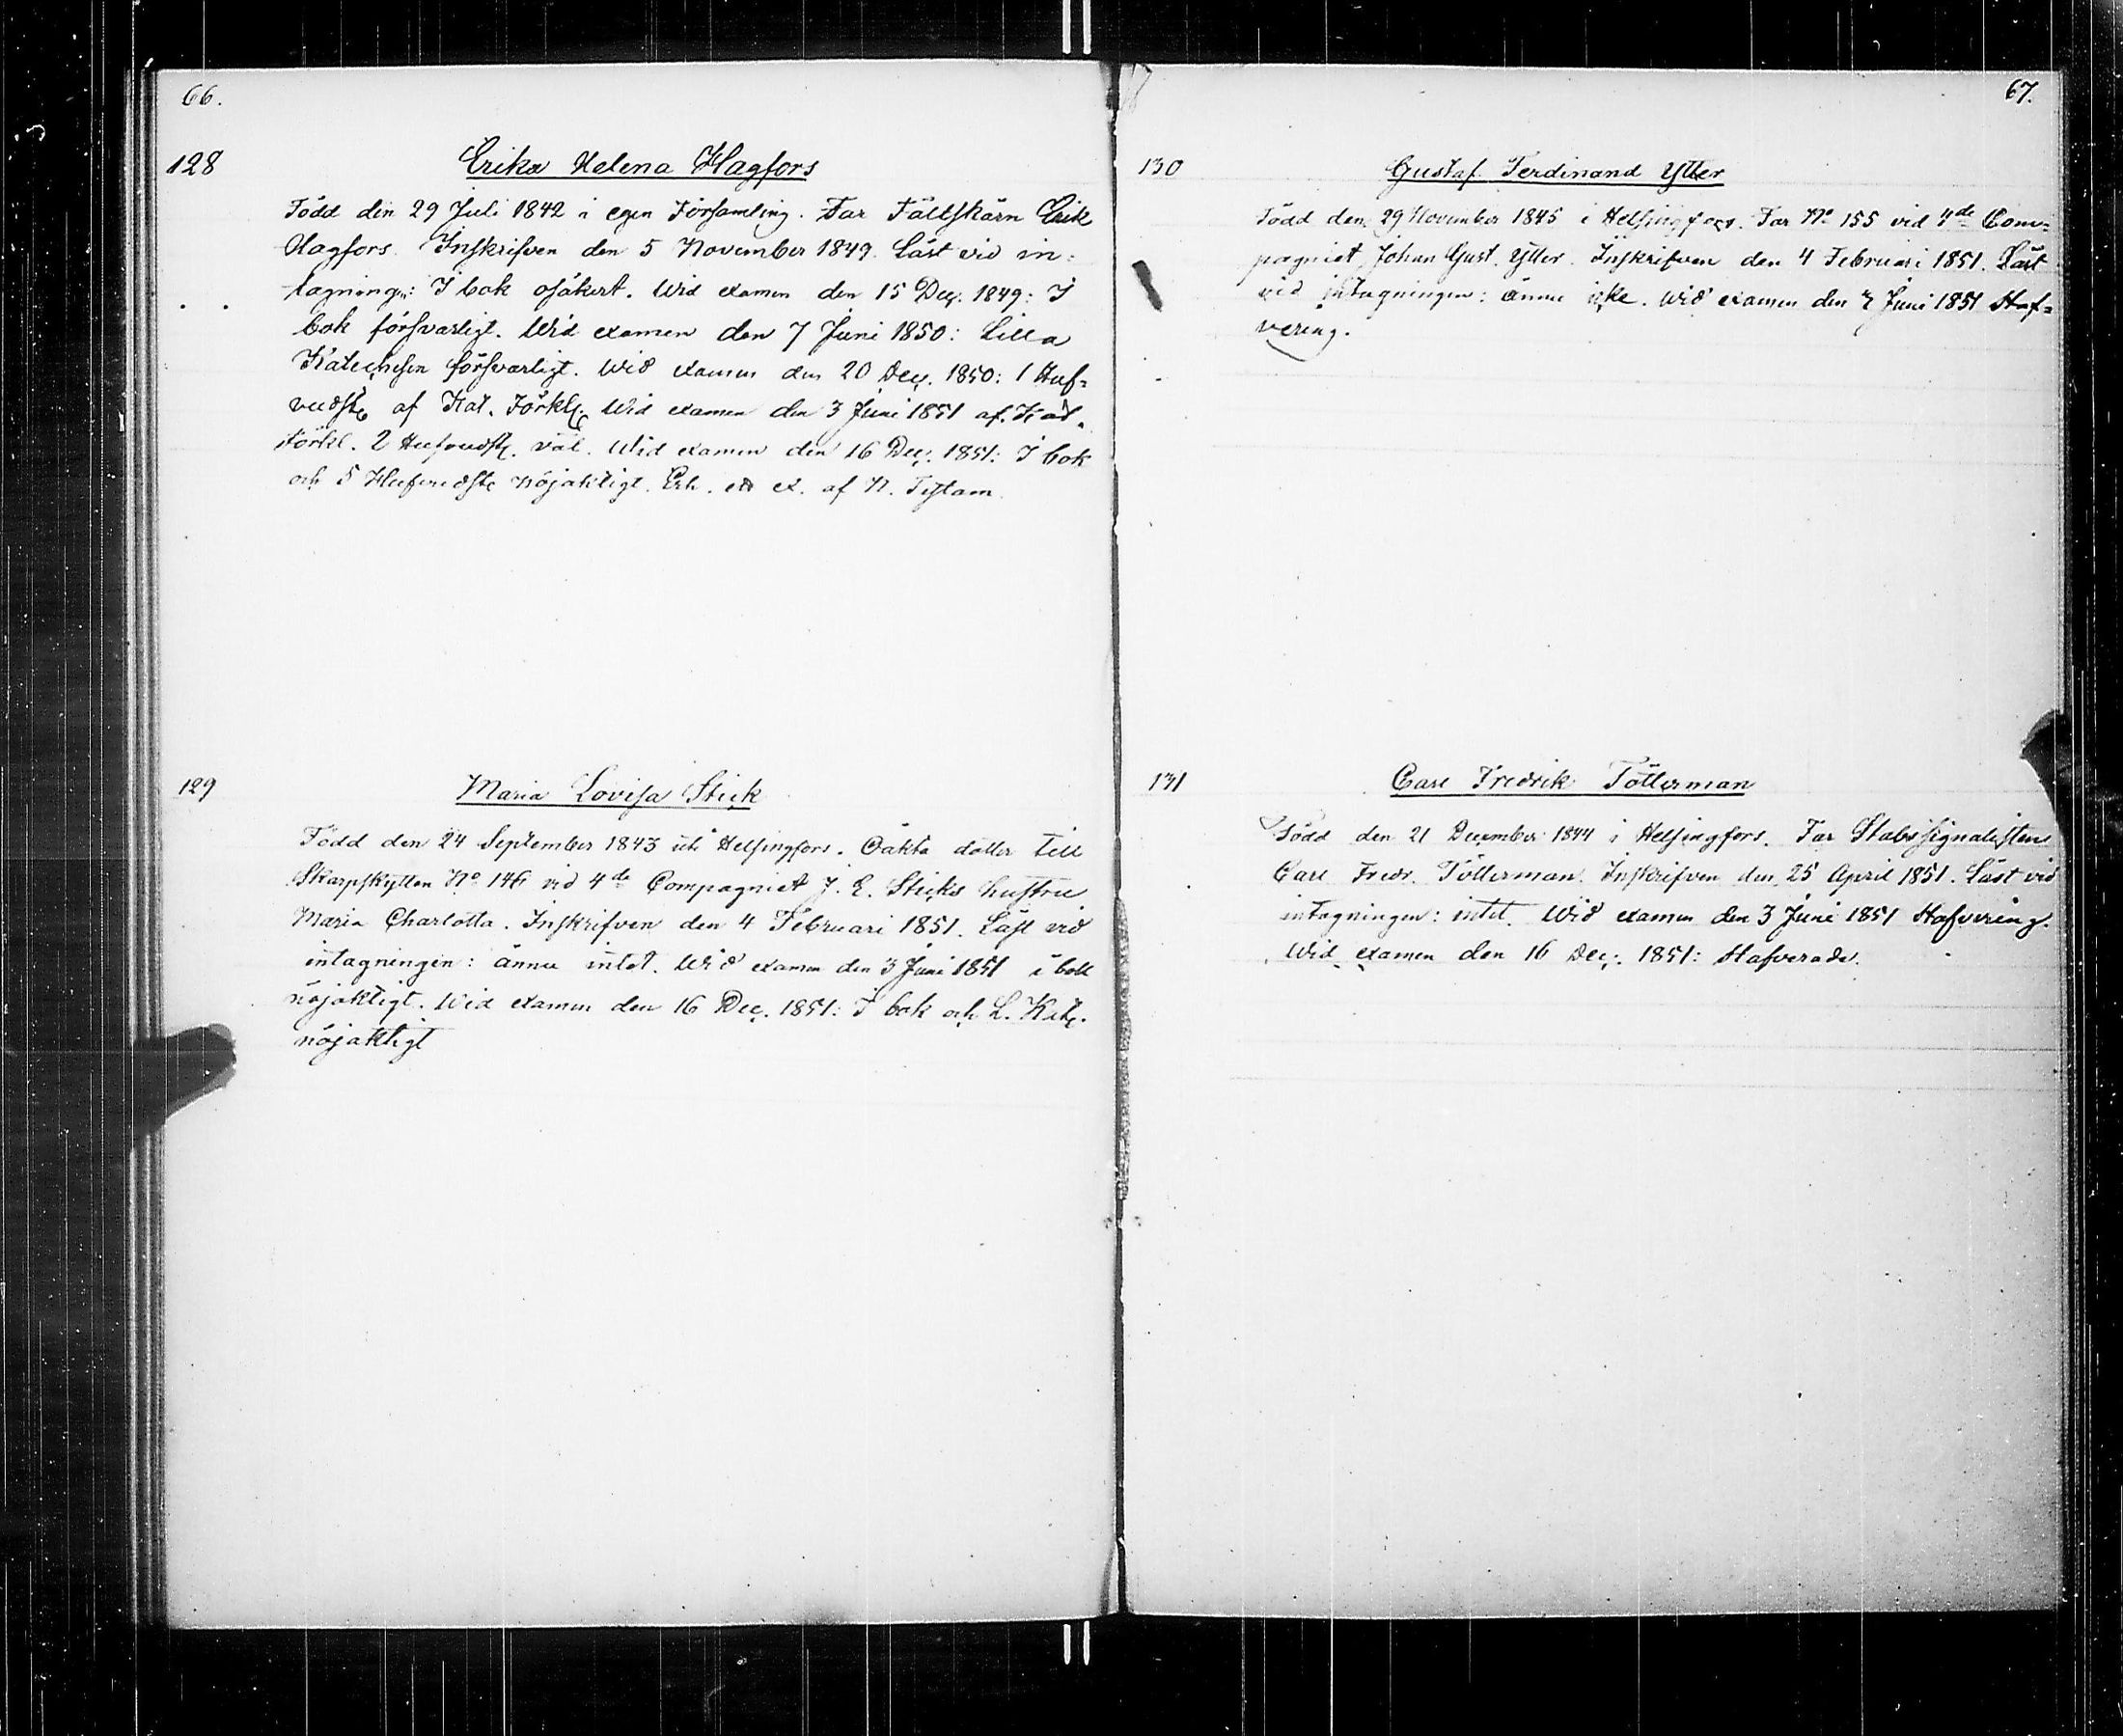 66.
128
Erika Helena Hagfors
Född den 29 Juli 1842 i egen Församling. Far Fältskärn Erik
Hagfors. Inskrifven den 5 November 1849. Läst vid in=
tagningn: I bok osäkert. Wid examen den 15 Dec. 1849: I
bok försvarligt. Wid examen den 7 Juni 1850: Lilla
Katechesen försvarligt. Wid examen den 20 Dec. 1850: 1 Huf=
vudst. af Kat. Förkl. Wid examen den 3 Juni 1851 af Kat.
Förkl. 2 Hufvudst. väl. Wid examen den 16 Dec. 1851: I bok
och 5 Hufvudst. nöjaktigt. Erh. ett ex. af N. Testam.
129
Maria Lovisa Stick
Född den 24 September 1843 uti Helsingfors. Oäkta dotter till
Skarpskytten No 146 vid 4de Compagniet J. E. Sticks hustru
Maria Charlotta. Inskrifven den 4 Februari 1851. Läst vid
intagningen: ännu intet. Wid examen den 3 Juni 1851 i bok
nöjaktigt. Wid examen den 16 Dec. 1851: I bok och L. Kat.
nöjaktigt
67.
130
Gustaf Ferdinand Ytter
Född den 29 November 1845 i Helsingfors. Far No 155 vid 4de Com=
pagniet Johan Gust. Ytter. Inskrifven den 4 Februari 1851. Läst
vid intagningen: ännu icke. Wid examen den 3 Juni 1851 Staf=
vering.
131
Carl Fredrik Tötterman
Född den 21 December 1844 i Helsingfors. Far Stabssignalisten
Carl Fredr. Tötterman. Inskrifven den 25 April 1851. Läst vid
intagningen: intet. Wid examen den 3 Juni 1851 Stafvering.
Wid examen den 16 Dec. 1851: Stafverade.